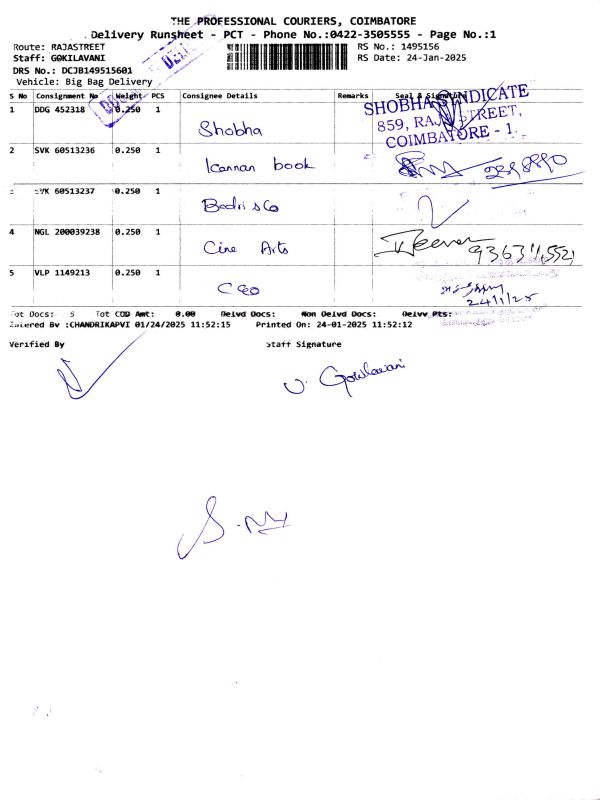 THE PROFESSIONAL COURIERS, COIMBATORE
Delivery Runsheet - PCT - Phone No.:0422-3505555 - Page No.:1
Route: RAJASTREET RS No.: 1495156
Staff: GOKILAVANI RS Date: 24-Jan-2025
DRS No.: DCJB149515601
Vehicle: Big Bag Delivery
S No Consignment No Weight PCS Consignee Details Remarks Seal & Signature
1 DDG 452318 0.250 1 Shobha
SHOBHA SYNDICATE
859, RAJA STREET,
COIMBATORE - 1.
2 SVK 60513236 0.250 1 Kannan book
3 SVK 60513237 0.250 1 Badri & Co
4 NGL 200039238 0.250 1 Cine Arts
5 VLP 1149213 0.250 1 CEO
24/1/25
Tot Docs: 5 Tot COD Amt: 0.00 Delvd Docs: Non Delvd Docs: Delvy Pts:
Entered By :CHANDRIKAPVI 01/24/2025 11:52:15 Printed On: 24-01-2025 11:52:12
Verified By Staff Signature
V. Gokilavani